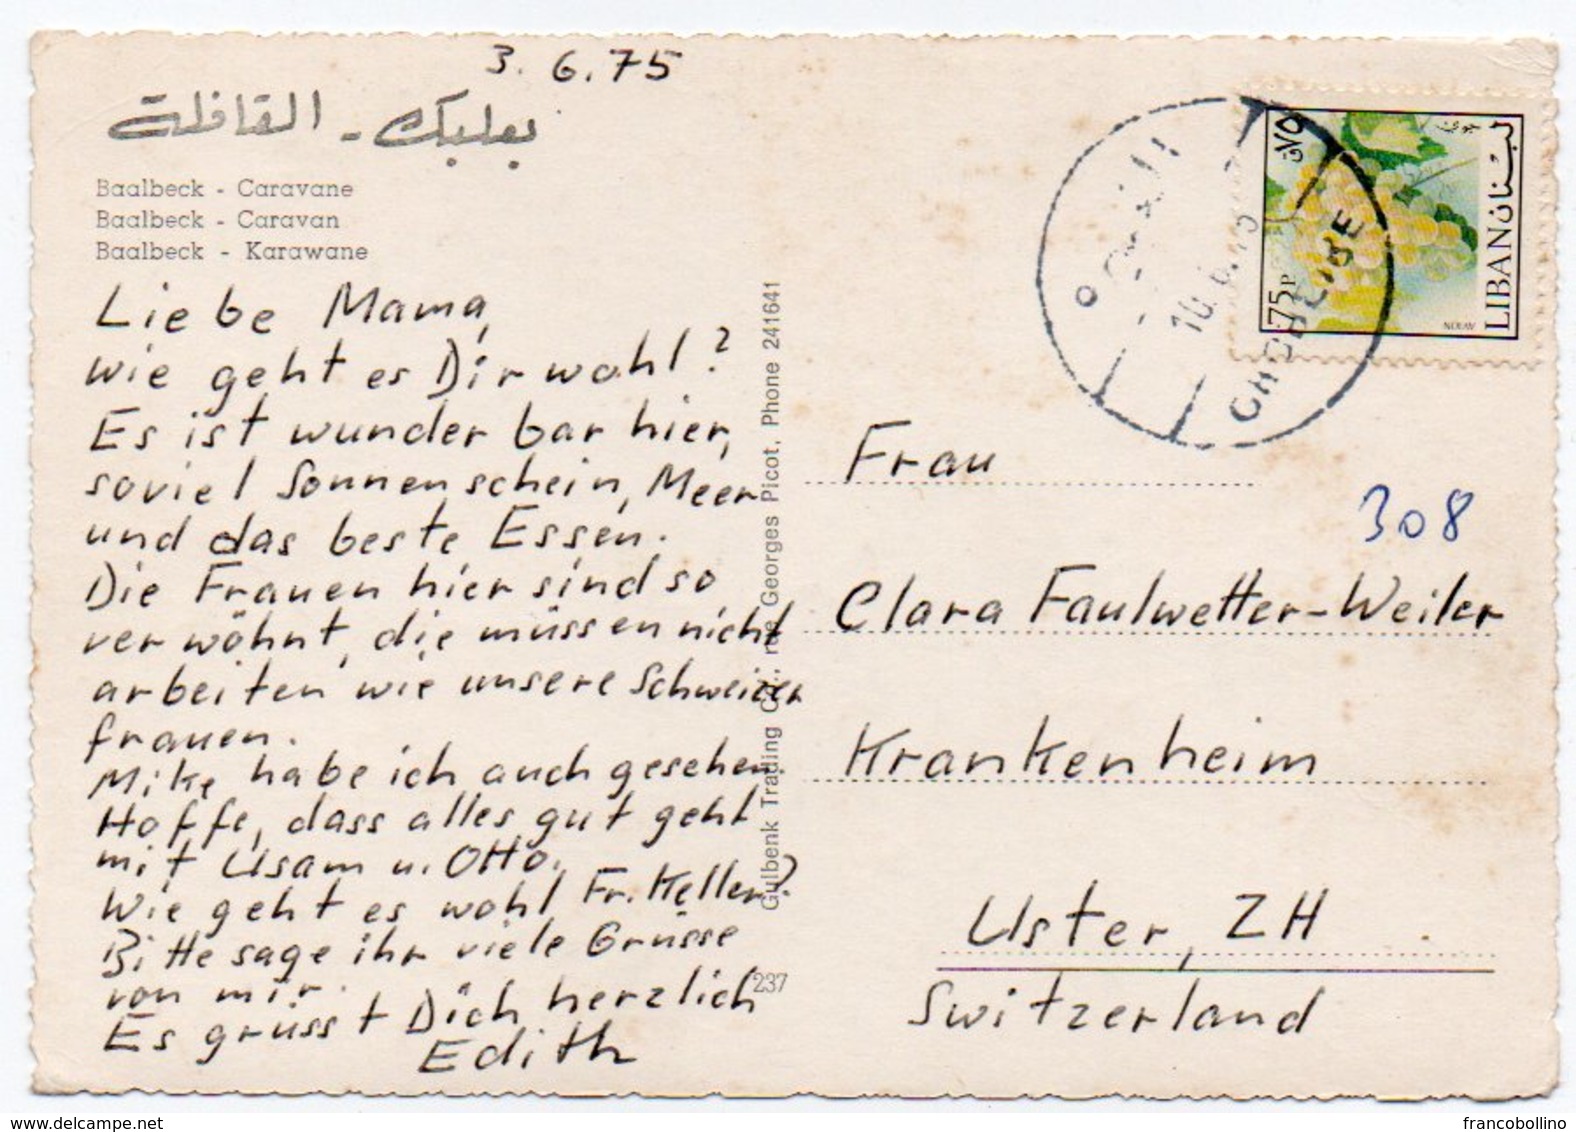 3. 6. 75
بعلبك - القافلة
Baalbeck - Caravane
Baalbeck - Caravan
Baalbeck - Karawane
Liebe Mama,
wie geht es Dir wohl?
Es ist wunderbar hier,
soviel Sonnenschein, Meer
und das beste Essen.
Die Frauen hier sind so
verwöhnt, die müssen nicht
arbeiten wie unsere Schweizer
frauen.
Mike habe ich auch gesehen.
Hoffe, dass alles gut geht
mit Usam u. Otto.
Wie geht es wohl Fr. Keller?
Bitte sage ihr viele Grüsse
von mir.
Es grüsst Dich herzlich
Edith
Gulbenk Trading Co.: rue Georges Picot. Phone 241641
237
لبنان
٧٥ق
75P
LIBAN
GHOBEIRE
Frau
308
Clara Faulwetter-Weiler
Krankenheim
Uster, ZH
Switzerland
delcampe.net
francobollino